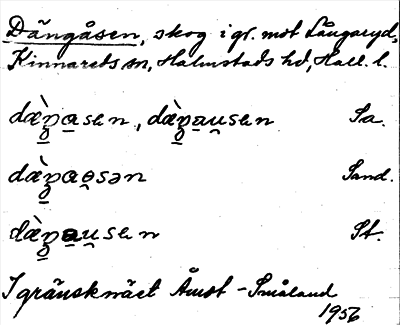 Dängåsen, skog i gr. mot Långaryd,
Kinnareds sn, Halmstads hd, Hall. l.
dæ̀ŋasen, dæ̀ŋau̯sen Sa.
dæ̀ŋao̯sən Sand.
dæ̀ŋau̯sen St.
I gränsknäet Åmot - Småland
1956